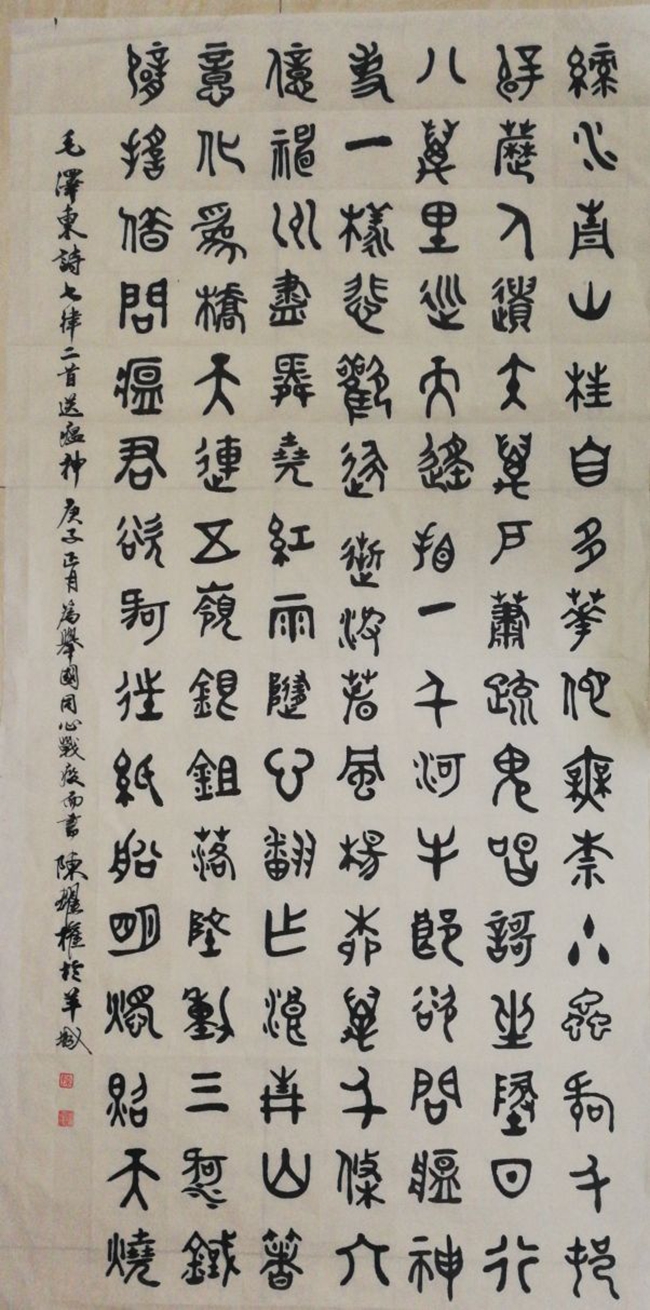 綠水青山枉自多華佗無奈小蟲何千村
薜荔人遺矢萬戶蕭疏鬼唱歌坐地日行
八萬里巡天遙看一千河牛郎欲問瘟神
事一樣悲歡逐逝波春風楊柳萬千條六
億神州盡舜堯紅雨隨心翻作浪青山著
意化為橋天連五嶺銀鋤落地動三河鐵
臂搖借問瘟君欲何往紙船明燭照天燒
毛澤東詩七律二首送瘟神 庚子正月為舉國同心戰疫而書 陳耀權於羊城